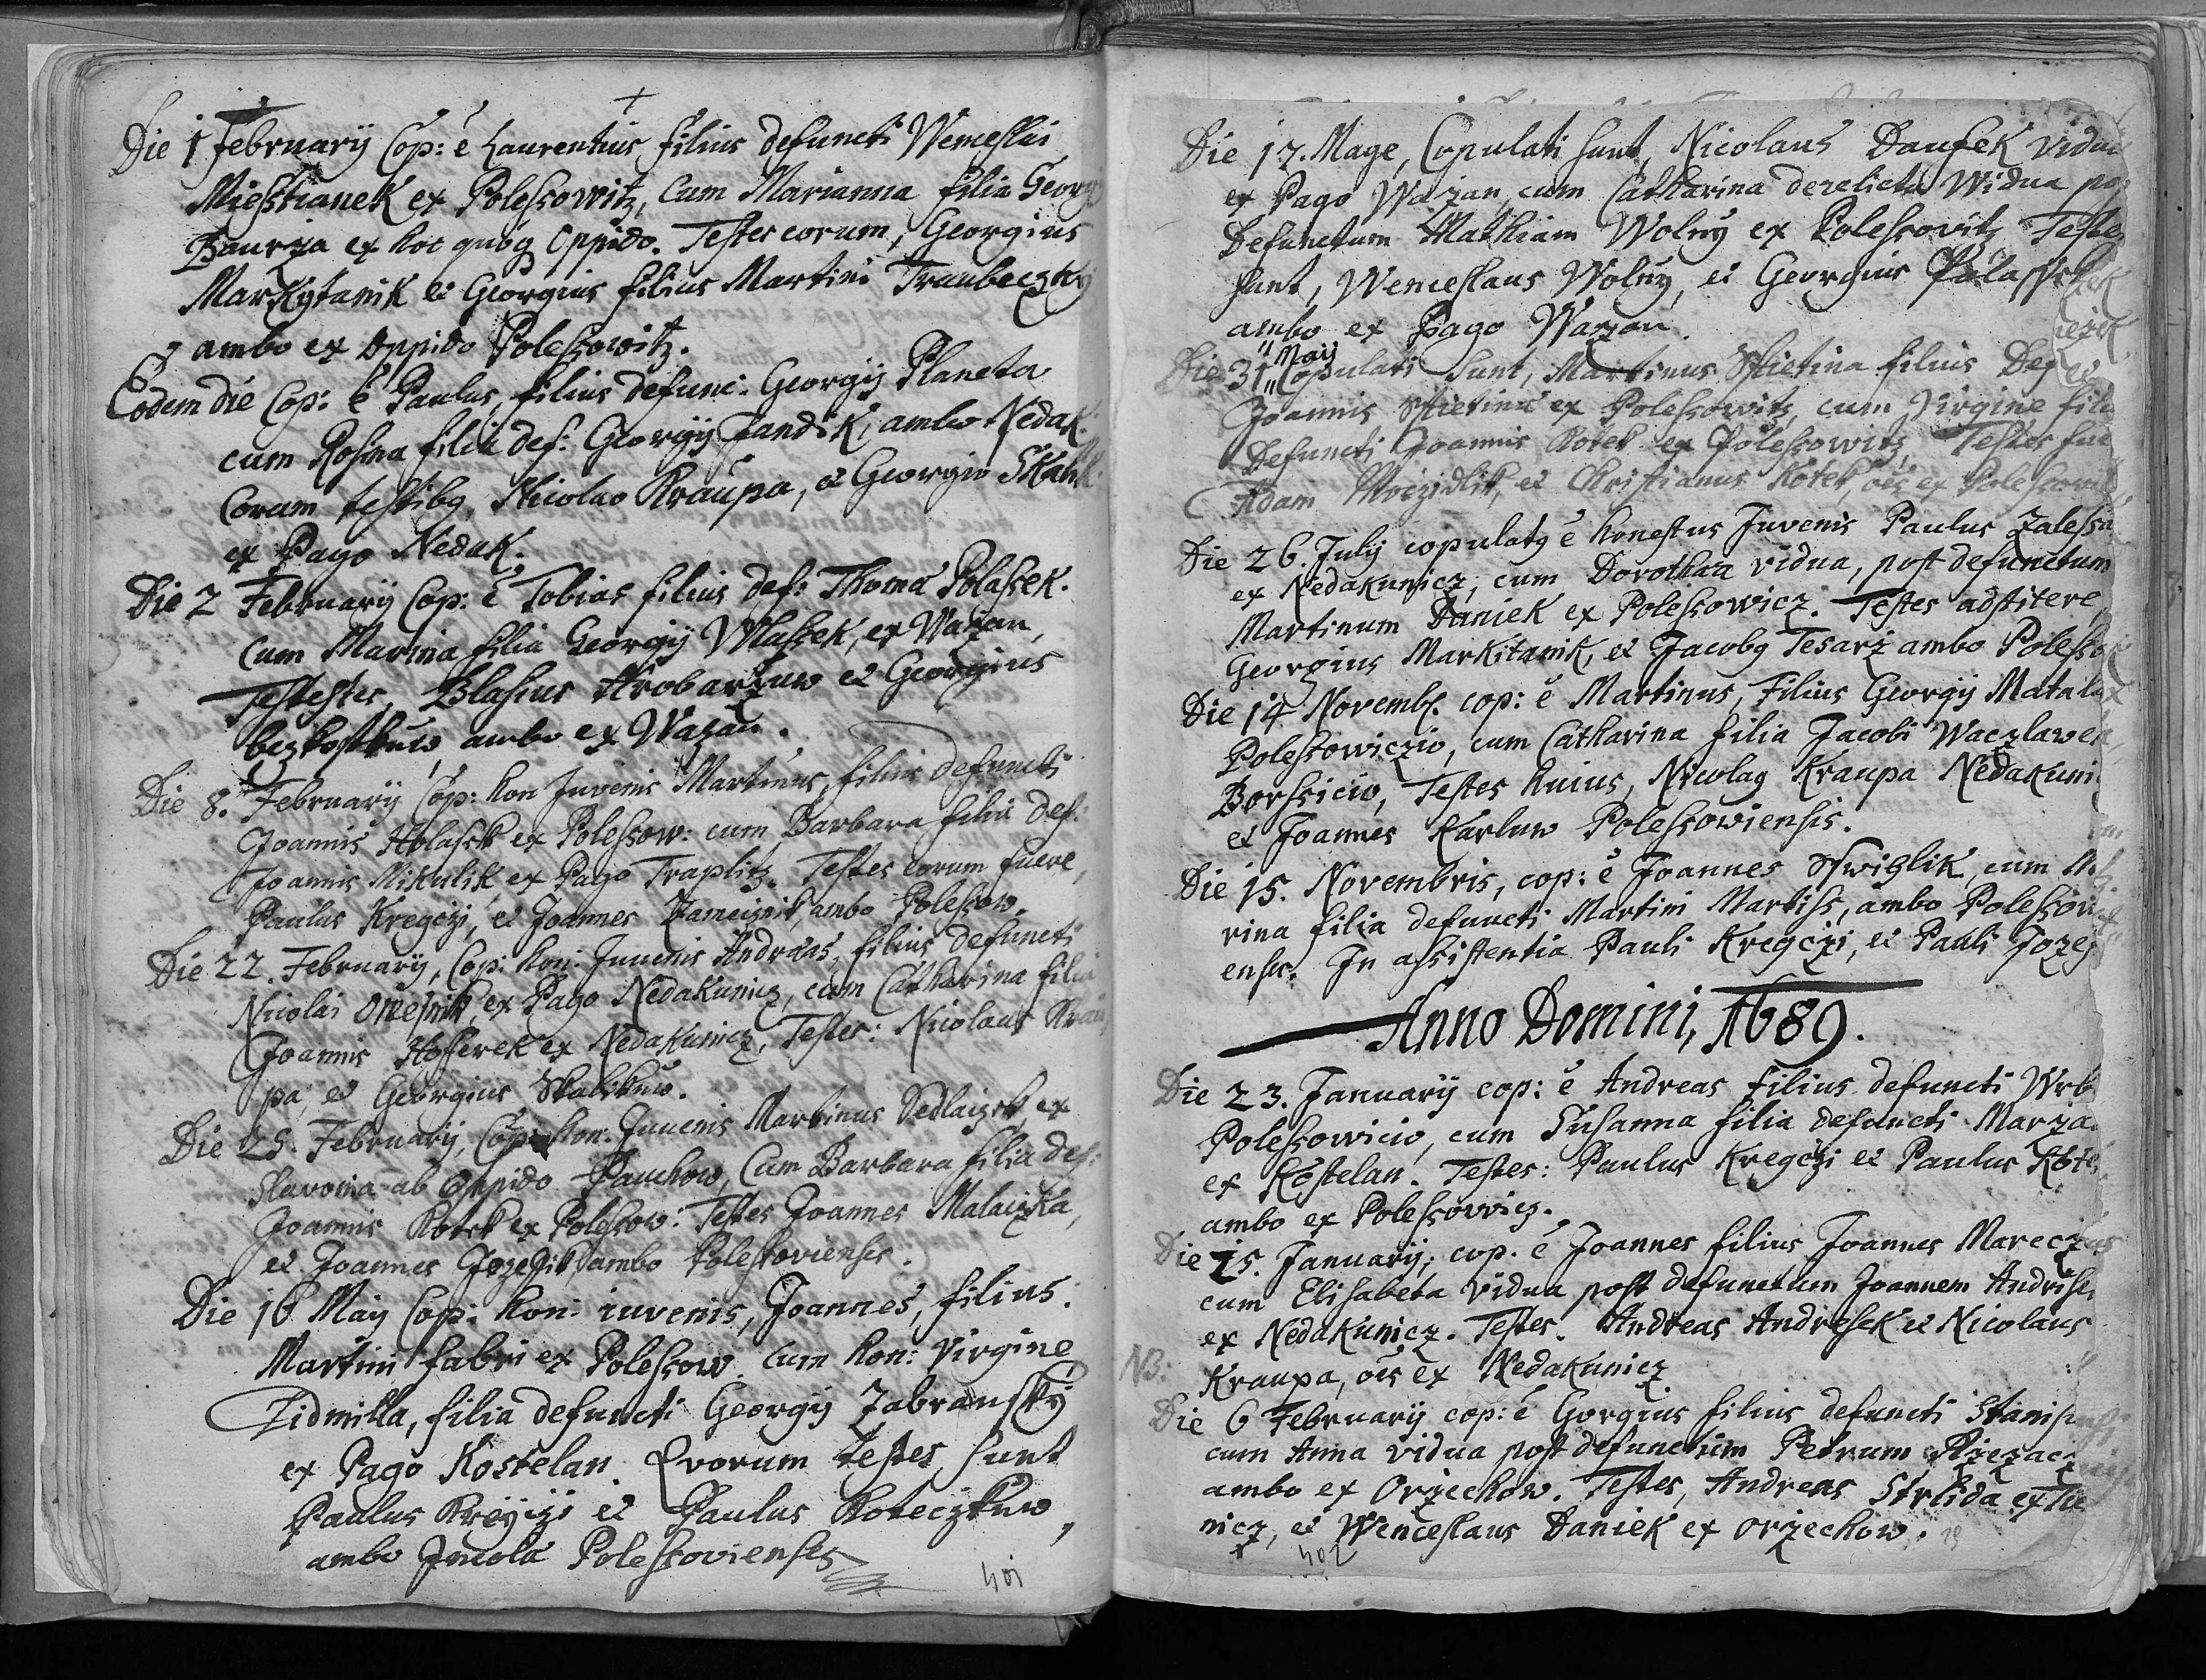 Die 1 February Cop: ē Laurentius filius defuncti Wenceslai
Miesstianek ex Polessowitz, Cum Marianna filia Georgy
Baurza ex hoc quoq Oppido. Testes eorum, Georgius
Markytanik et Georgius filius Martini Traubeczky
ambo ex Oppido Polessowitz.
Eodem die Cop: ē Paulus, filius defunc: Georgij Planeta
cum Rosina filia def: Georgij Jandik, ambo Nedak:
Coram testibg Nicolao Kraupa, et Georgio
ex Pago Nedak.
Die 2 February Cop: ē Tobias filius def: Thoma Polassek.
Cum Marina filia Georgij Wlassek, ex Wazan,
Testestes, Blasius Hrobarzuw et Georgius
bezkostkuw ambo ex Wazan.
Die 8. February Cop: hon Juvenis Martinus, filius defuncti
Joannis Holassek ex Polessow: cum Barbara filia def:
Joannis Mikulik ex Pago Traplitz. Testes eorum fuere,
Paulus Kregczy, et Joannes Zameiznik, ambo Polessow.
Die 22. February, Cop: hon: Juuenis Andraas, filius defuncti
Nicolai Omesnik, ex Pago Nedakunicz, cum Catharina filia
Joannis Hosserek ex Nedakunicz, Testes: Nicolaus Krau
pa, et Georgius Skalskuw.
Die 25. February, Cop: hon: Juuenis Martinus Sedlaczek, ex
Slavonia ab Oppido Pauchow, Cum Barbara filia def:
Joannis Kotek ex Polessow: Testes Joannes Malaczka,
et Joannes Jozefik, ambo Polessovienses.
Die 16 May Cop: hon: iuvenis, Joannes, filius
Martini fabri ex Polessow. cum hon: Virgine
Lidmilla, filia defuncti Georgij Zabransky
ex Pago Kostelan. Quorum testes sunt
Paulus Kreyczi et Paulus Koteczkuw,
ambo Incola Polessovienses
401
Die 17. Mage, Copulati sunt, Nicolaus Daufek vidu
ex Pago Wazan, cum Catharina derelicta Widua
Defunctum Mathiam Wolny ex Polessovitz Teste
sunt, Wenceslaus Wolny, et Georgius
ambo ex Pago Wazan.
Die 31 Maij Copulati sunt, Martinus Stietina filius Def
Joannis Stietina ex Polessowitz, cum Virgine fili
Defuncti Joannis Kotek ex Polessowitz, Testes fue
Adam et Christianus Kotek, oēs ex Polessowi
Die 26. July copulatg ē honestus Juvenis Paulus Zalessa
ex Nedakunicz; cum Dorothaa vidua, post defunctum
Martinum Daniek ex Polessowicz. Testes adstitere,
Georgius Markitanik, et Jacobg Tesarz ambo Polesso
Die 14 Novemb. cop: ē Martinus, Filius Georgij Matala
Polessowiczio, cum Catharina filia Jacobi Waczlawek,
Borssicio, Testes huius, Nicolag Kraupa Nedakuni
et Joannes Karluw Polessowiensis.
Die 15. Novembris, cop: ē Joannes Swiglik, cum
rina filia defuncti Martini Martiss, ambo Polessowi
enses. In assistentia Pauli Kregczi, et Pauli Joze
Anno Domini, 1689.
Die 23. January cop: ē Andreas filius defuncti Wrb
Polessowicio, cum Susanna filia defuncti Marza
ex Kostelan. Testes: Paulus Kregczi et Paulus Kote
ambo ex Polessowicz.
Die 25. January, cop. ē Joannes filius Joannes Marecz
cum Elisabeta vidua post defunctum Joannem Andrise
ex Nedakunicz. Testes. Andreas Andresek et Nicolaus
NB: Kraupa, oēs ex Nedakunicz
Die 6 February cop: ē Gorgius filius defuncti Stanis
cum Anna vidua post defunctum Petrum
ambo ex Orzechow. Testes, Andreas Strzida ex
nicz, et Wenceslaus Daniek ex Orzechow.
402